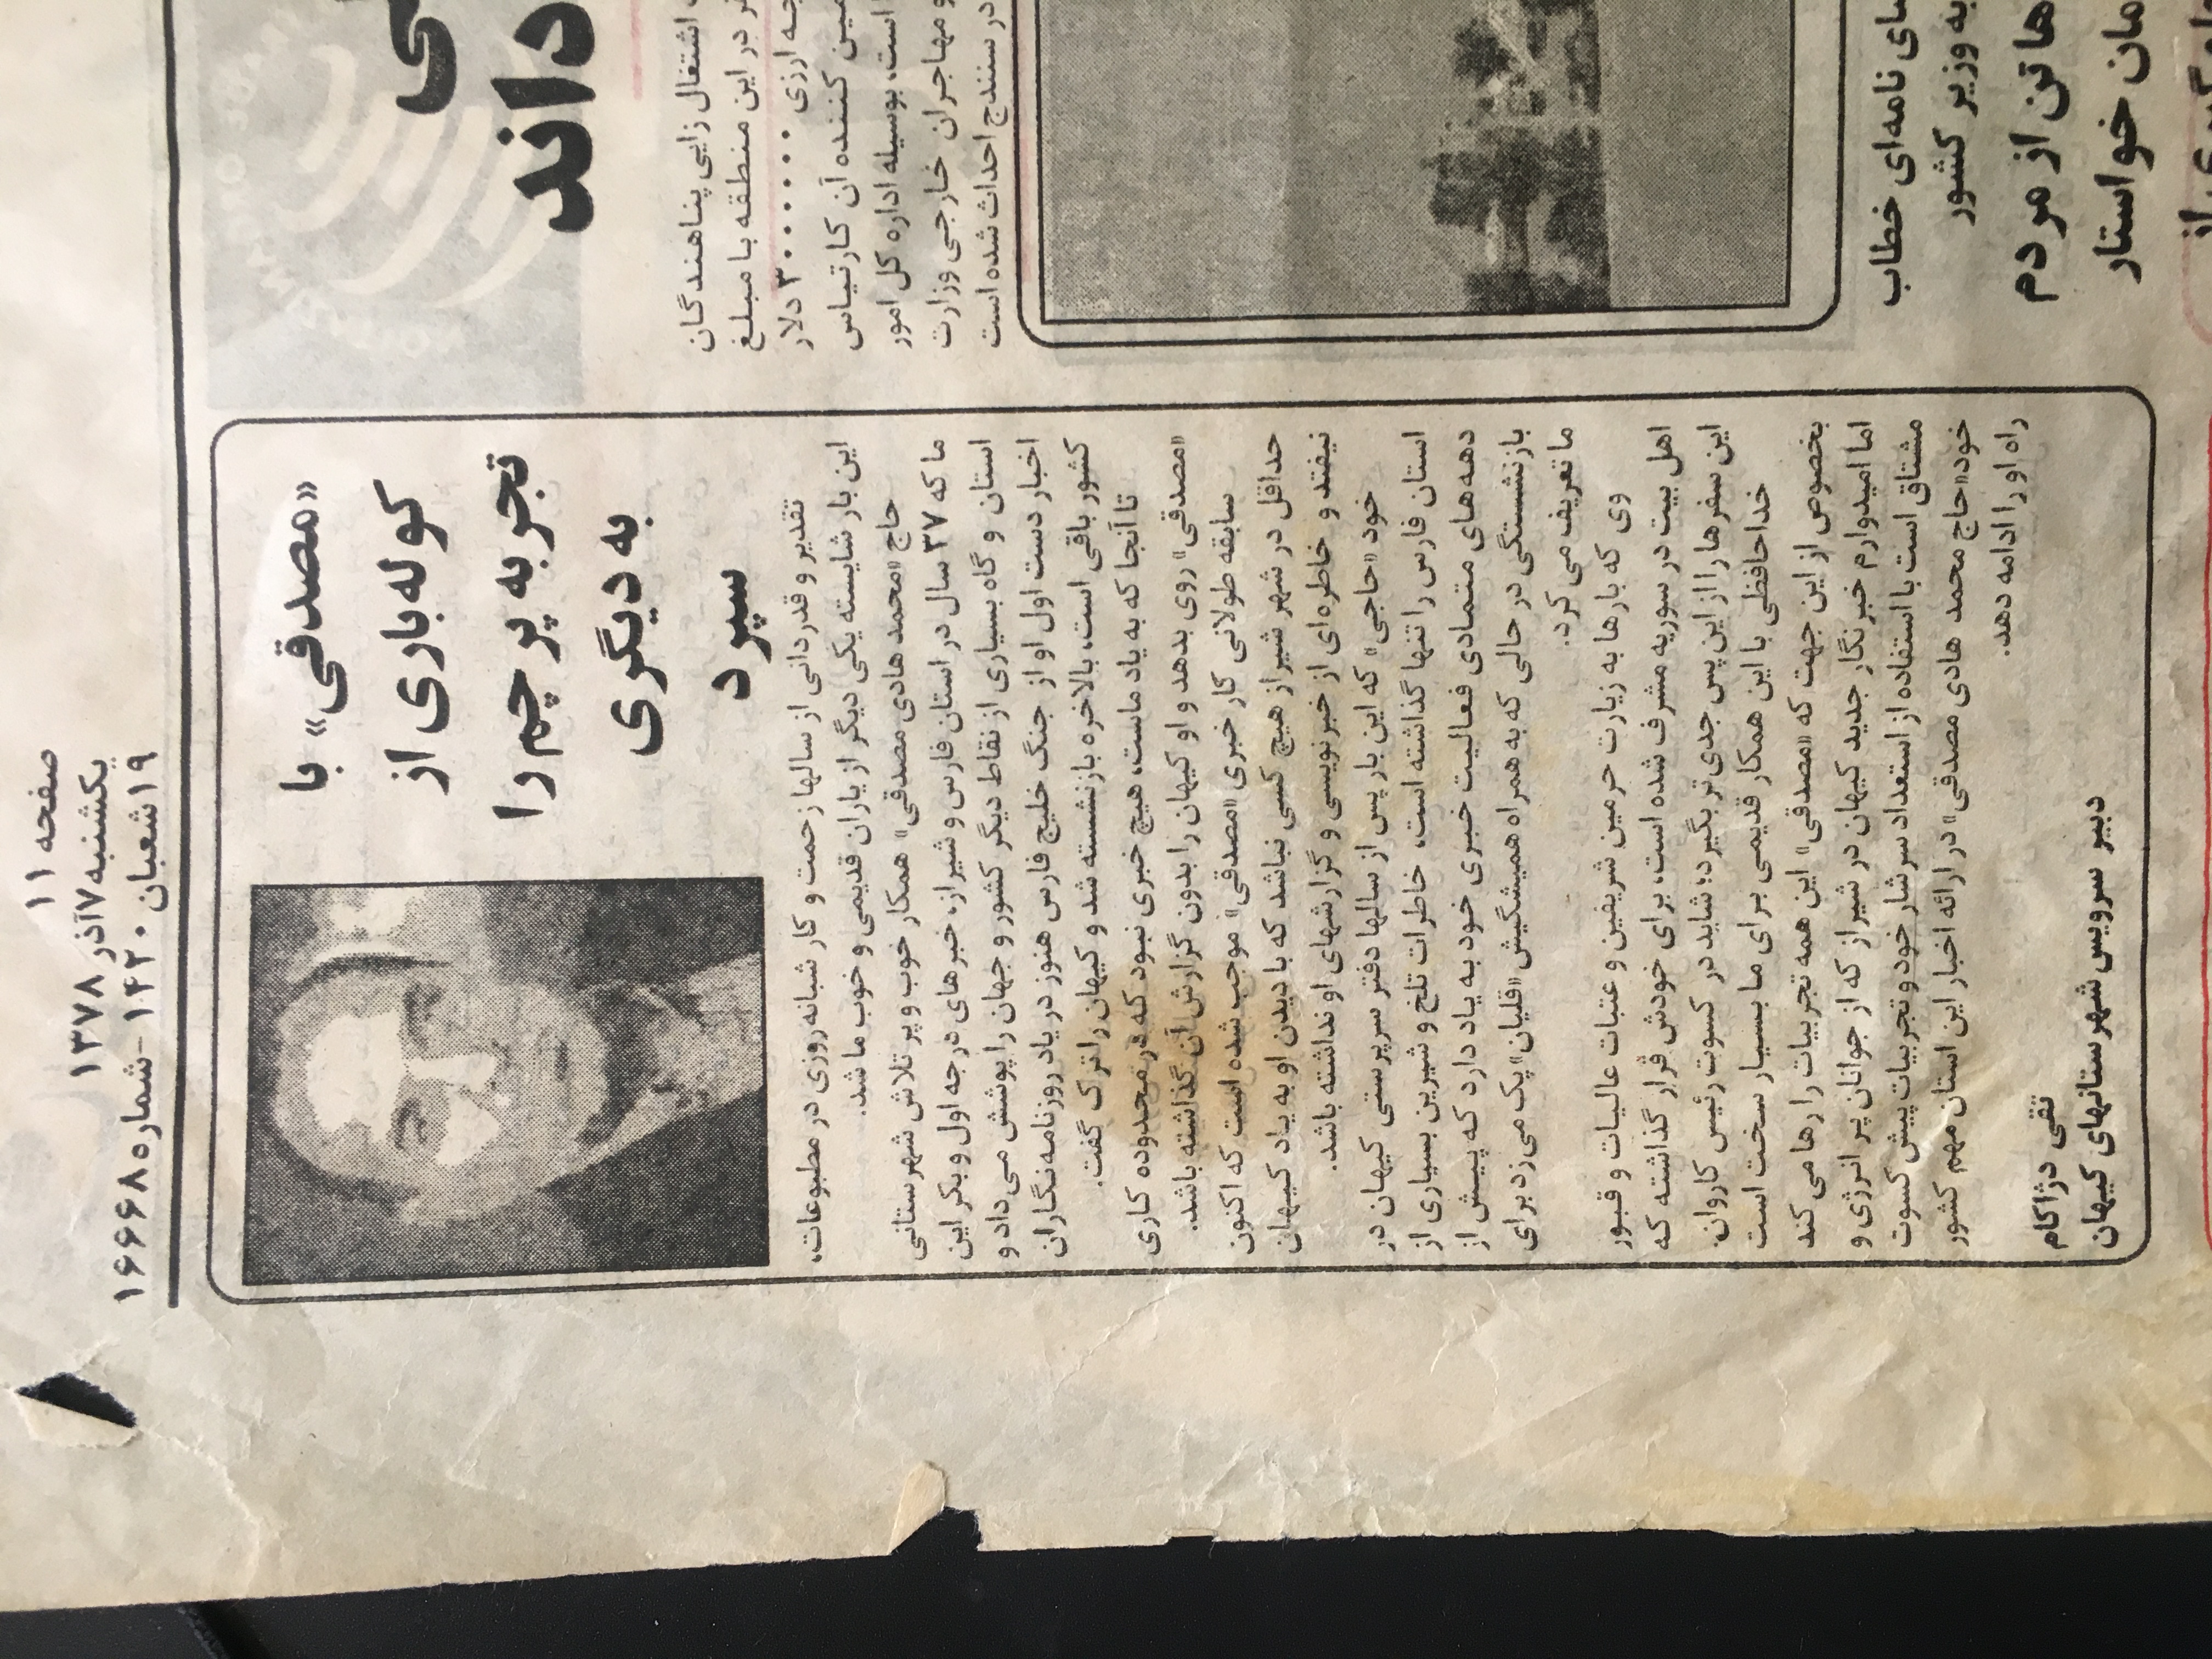 صفحه ۱۱
یکشنبه ۷ آذر ۱۳۷۸
۱۹ شعبان ۱۴۲۰ - شماره ۱۶۶۶۸
«مصدقی» با
کوله‌باری از
تجربه پرچم را
به دیگری
سپرد
تقدیر و قدردانی از سالها زحمت و کار شبانه‌روزی در مطبوعات،
این بار شایسته یکی دیگر از یاران قدیمی و خوب ما شد.
حاج «محمد هادی مصدقی» همکار خوب و پر تلاش شهرستانی
ما که ۳۷ سال در استان فارس و شیراز، خبرهای درجه اول و بکر این
استان و گاه بسیاری از نقاط دیگر کشور و جهان را پوشش می‌داد و
اخبار دست اول او از جنگ خلیج فارس هنوز در یاد روزنامه‌نگاران
کشور باقی است، بالاخره بازنشسته شد و کیهان را ترک گفت.
تا آنجا که به یاد ماست، هیچ خبری نبود که در محدوده کاری
«مصدقی» روی بدهد و او کیهان را بدون گزارش آن گذاشته باشد.
سابقه طولانی کار خبری «مصدقی» موجب شده است که اکنون
حداقل در شهر شیراز هیچ کسی نباشد که با دیدن او به یاد کیهان
نیفتد و خاطره‌ای از خبرنویسی و گزارشهای او نداشته باشد.
خود «حاجی» که این بار پس از سالها دفتر سرپرستی کیهان در
استان فارس را تنها گذاشته است، خاطرات تلخ و شیرین بسیاری از
دهه‌های متمادی فعالیت خبری خود به یاد دارد که پیش از
بازنشستگی در حالی که به همراه همیشگیش «قلیان» پک می‌زد برای
ما تعریف می‌کرد.
وی که بارها به زیارت حرمین شریفین و عتبات عالیات و قبور
اهل بیت در سوریه مشرف شده است، برای خودش قرار گذاشته که
این سفرها را از این پس جدی‌تر بگیرد؛ شاید در کسوت رئیس کاروان.
خداحافظی با این همکار قدیمی برای ما بسیار سخت است
بخصوص از این جهت که «مصدقی» این همه تجربیات را رها می‌کند
اما امیدوارم خبرنگار جدید کیهان در شیراز که از جوانان پر انرژی و
مشتاق است با استفاده از استعداد سرشار خود و تجربیات پیش کسوت
خود «حاج محمد هادی مصدقی» در ارائه اخبار این استان مهم کشور
راه او را ادامه دهد.
تقی دژاکام
دبیر سرویس شهرستانهای کیهان
داند
اشتغال زایی پناهندگان
در این منطقه با مبلغ
ارزی ۳۰۰۰۰۰۰ دلار
کننده آن کارتیاس
است، بوسیله اداره کل امور
و مهاجران خارجی وزارت
در سنندج احداث شده است
نامه‌ای خطاب
به وزیر کشور
ها تن از مردم
خواستار
از